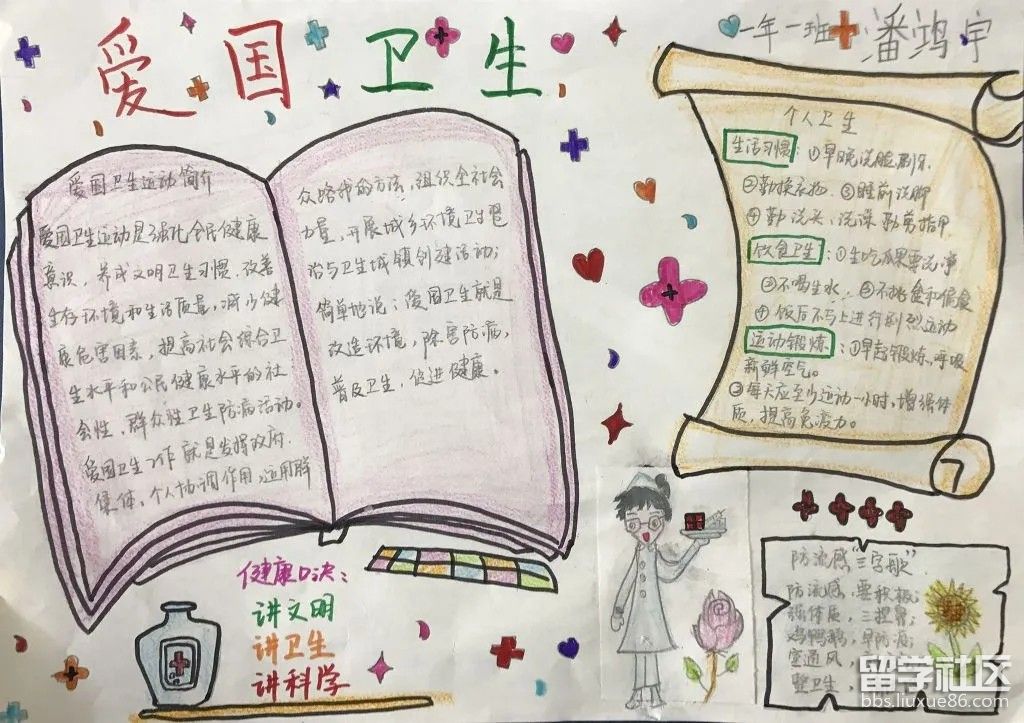 爱国卫生
一年一班 潘鸿宇
爱国卫生运动简介
爱国卫生运动是强化全民健康
意识，养成文明卫生习惯，改善
生存环境和生活质量，减少健
康危害因素，提高社会综合卫
生水平和公民健康水平的社
会性、群众性卫生防病活动。
爱国卫生工作就是发挥政府、
集体、个人协调作用，运用群
众路线的方法，组织全社会
力量，开展城乡环境卫生整
治与卫生城镇创建活动；
简单地说：爱国卫生就是
改造环境，除害防病，
普及卫生，促进健康。
个人卫生
生活习惯：①早晚洗脸刷牙
②勤换衣物 ③睡前洗脚
④勤洗头、洗澡 勤剪指甲
饮食卫生：①生吃瓜果要洗净
②不喝生水，③不挑食和偏食
④饭后不马上进行剧烈运动
运动锻炼：①早起锻炼，呼吸
新鲜空气。
②每天应至少运动一小时，增强体
质，提高免疫力。
健康口决：
讲文明
讲卫生
讲科学
防流感"三字歌"
防流感，要积极；
强体质，
鸡鸭鹅，早防疫；
室通风，
整卫生，
留学社区
bbs.liuxue86.com